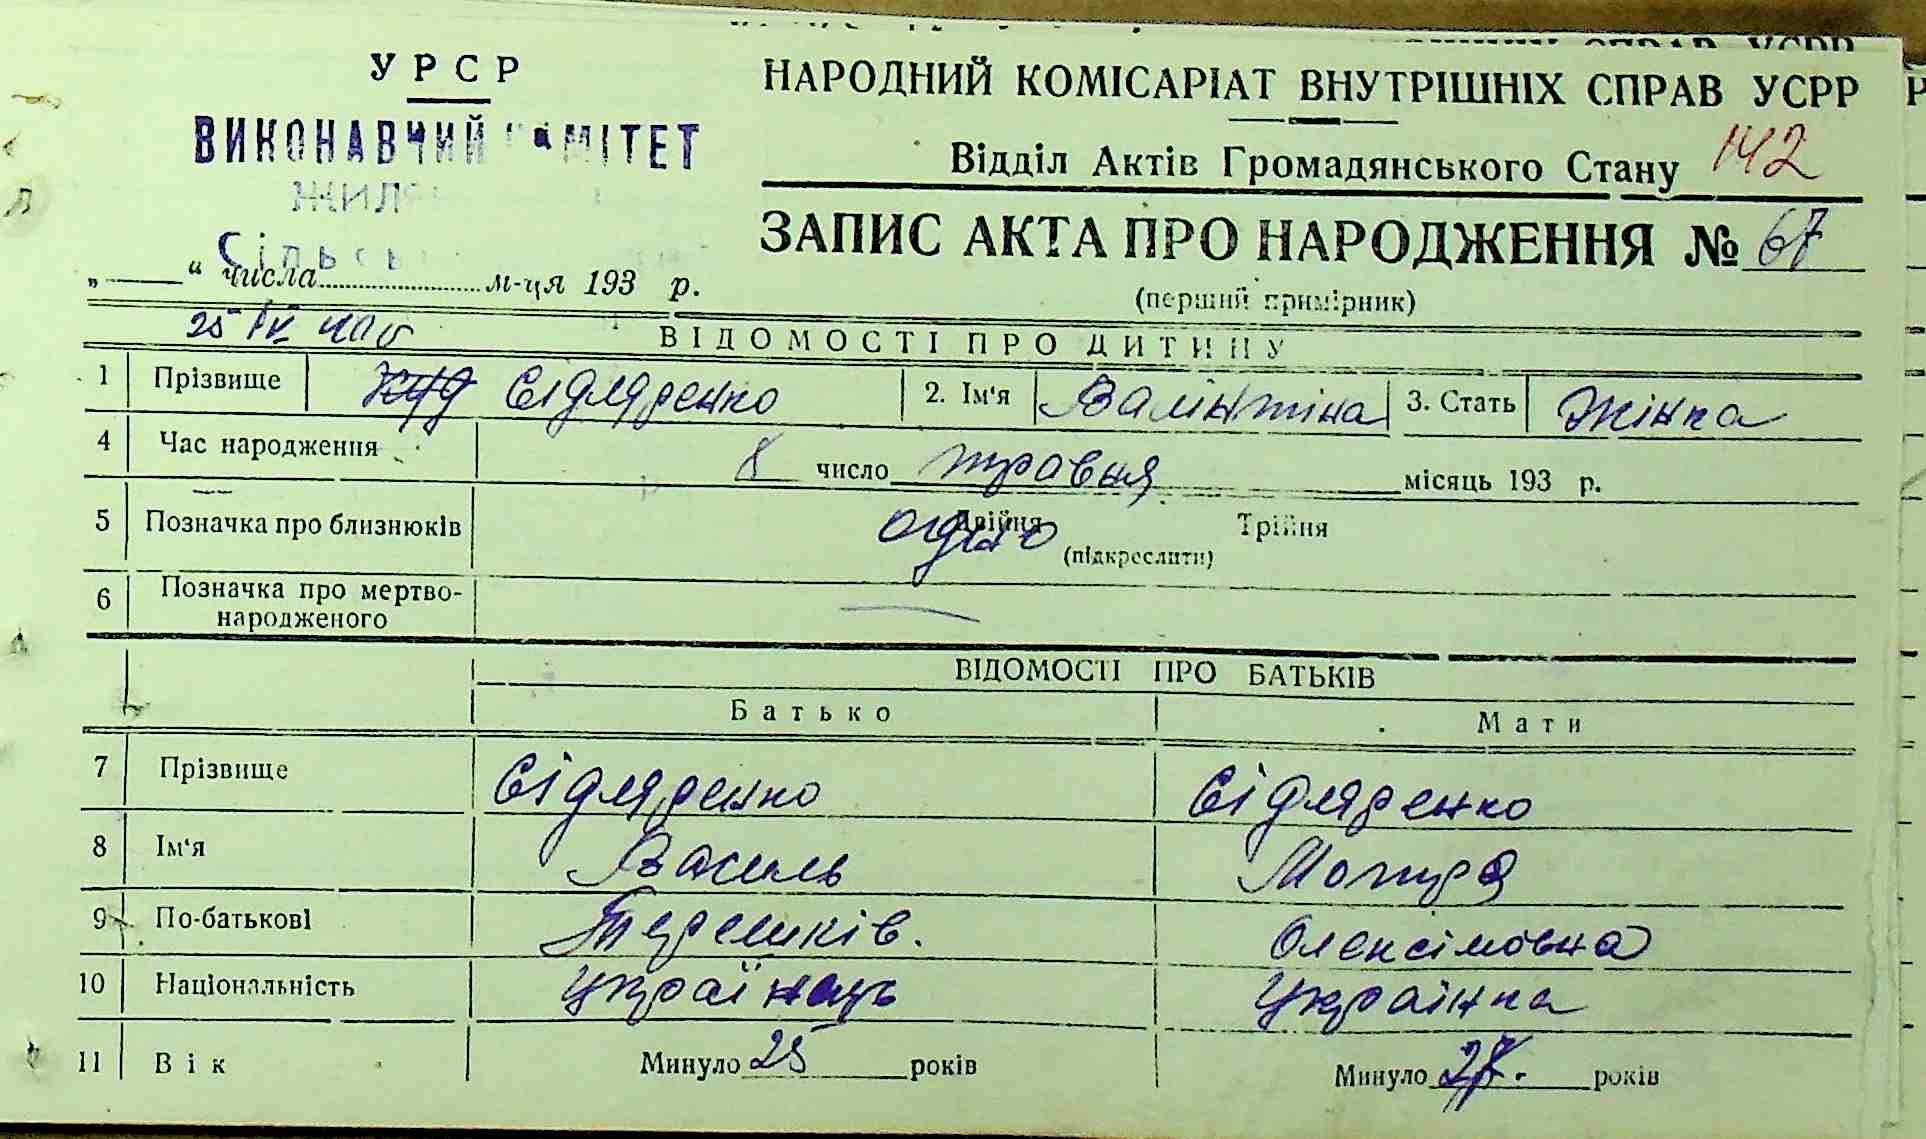 УРСР
ВИКОНАВЧИЙ КОМІТЕТ
НАРОДНИЙ КОМІСАРІАТ ВНУТРІШНІХ СПРАВ УСРР
Відділ Актів Громадянського Стану 142
ЗАПИС АКТА ПРО НАРОДЖЕННЯ № 67
„ “ числа м-ця 193 р.
(перший примірник)
25 IV
ВІДОМОСТІ ПРО ДИТИНУ
1 Прізвище Сідляренко 2. Ім'я Валінтіна 3. Стать Жінка
4 Час народження 8 число травня місяць 193 р.
5 Позначка про близнюків Двійня одно Трійня
(підкреслити)
6 Позначка про мертво-
народженого
ВІДОМОСТІ ПРО БАТЬКІВ
Батько Мати
7 Прізвище Сідляренко Сідляренко
8 Ім'я Василь Мотря
9 По-батькові Терешків. Олексімовна
10 Національність Українець Українка
11 Вік Минуло 25 років Минуло років